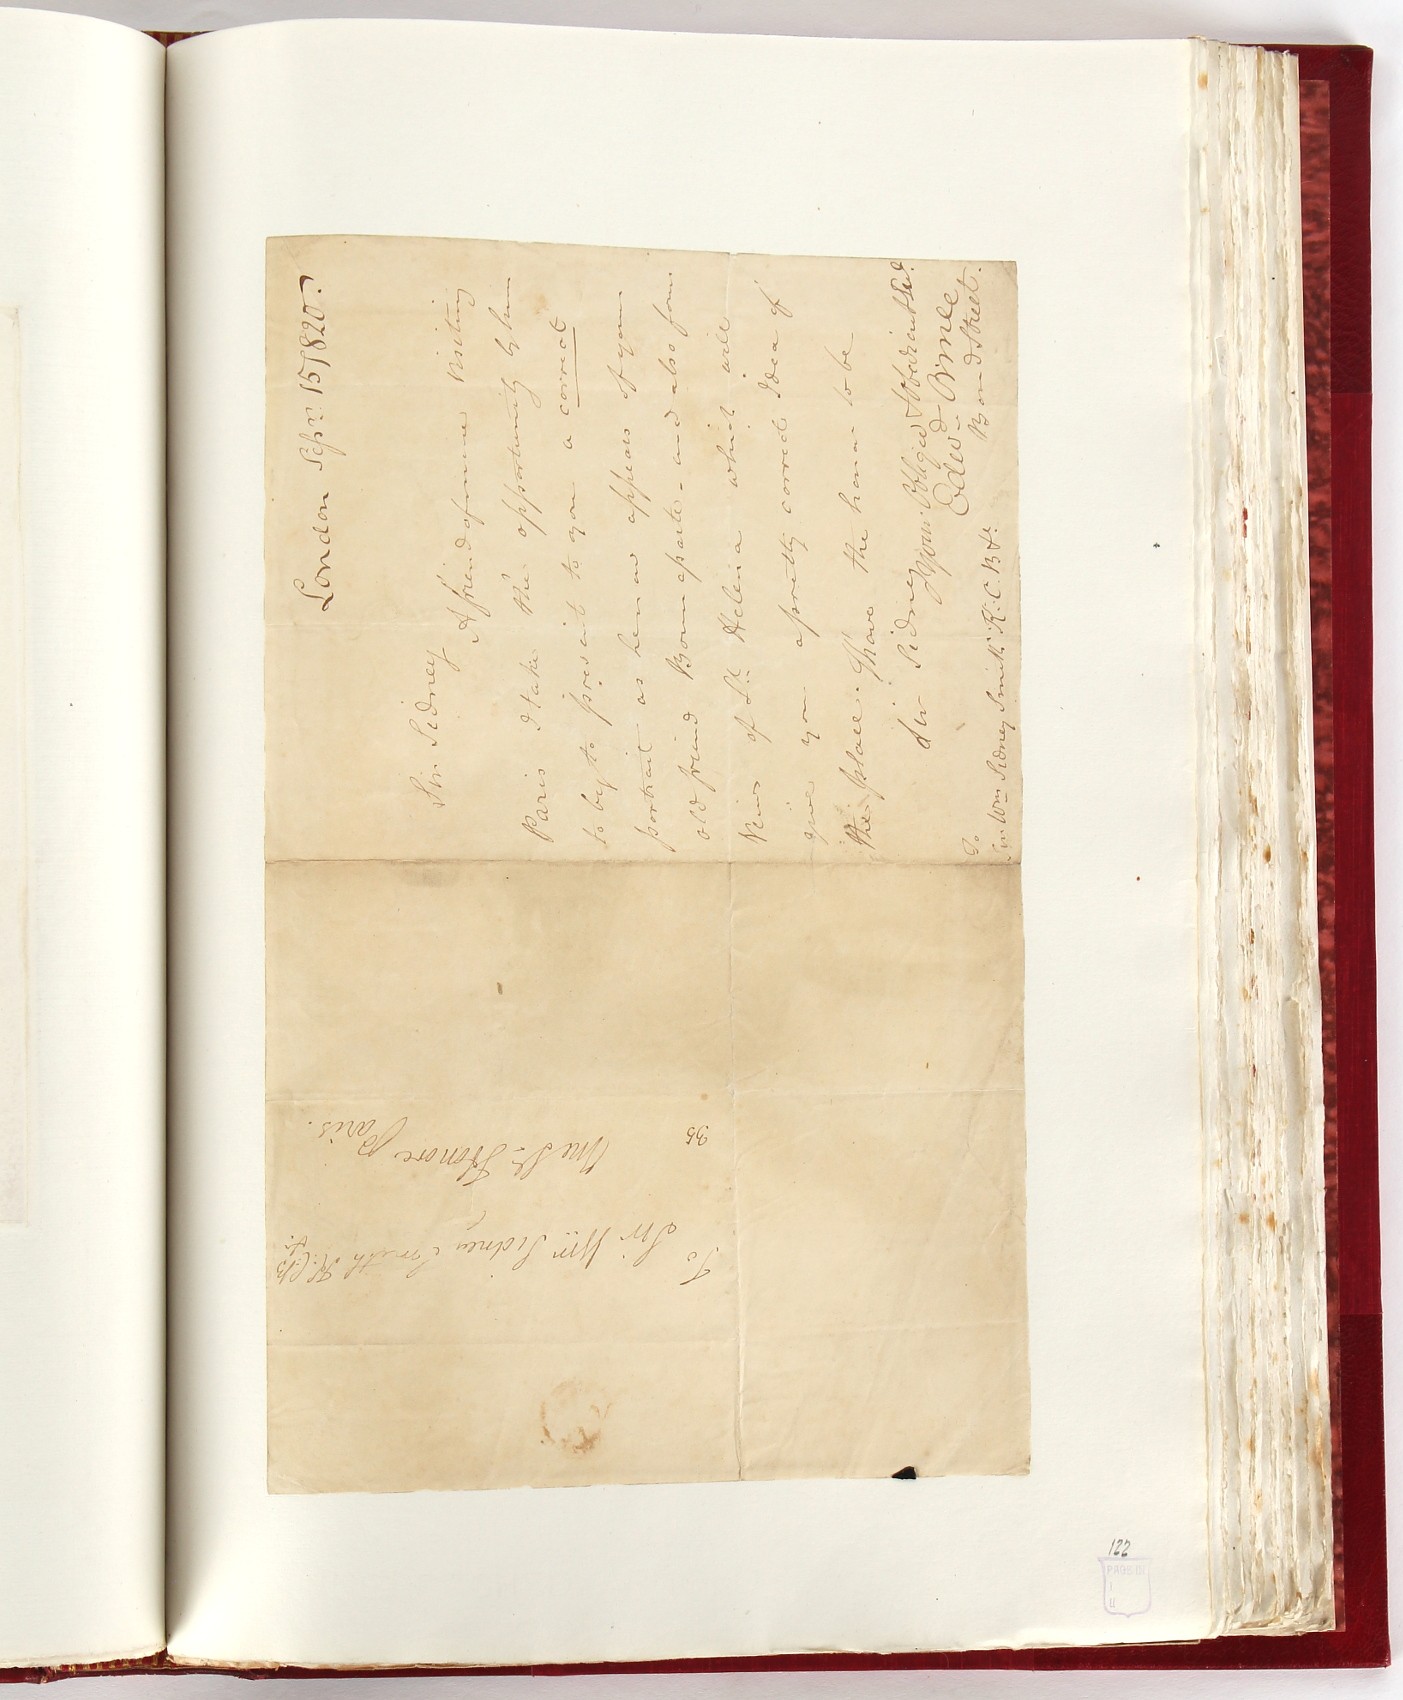 London Sepr. 15/1820.
Sir Sidney
A friend of mine visiting
Paris I take the opportunity by him
to beg to present to you a correct
portrait as he now appears of your
old friend Bounaparte - and also four
Views of St. Helena which will
give you a pretty correct Idea of
the place. I have the honor to be
Sir Sidney your Obliged & Obedient Sert.
Edwd. Orme
Bond Street.
To
Sir Wm Sidney Smith K.C.B &c.
To
Sir Wm Sidney Smith K.C.B
&c.
35
Rue St. Honore
Paris.
122
PAGE IN
I
II